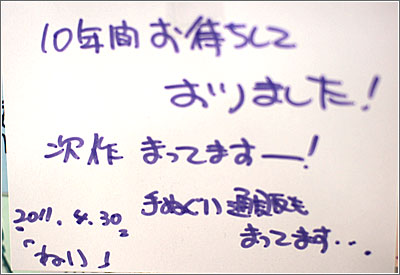 10年間お待ちして
おりました!
次作 まってますー!
手ぬぐい通販も
まってます・・・
2011.4.30
「ねい」